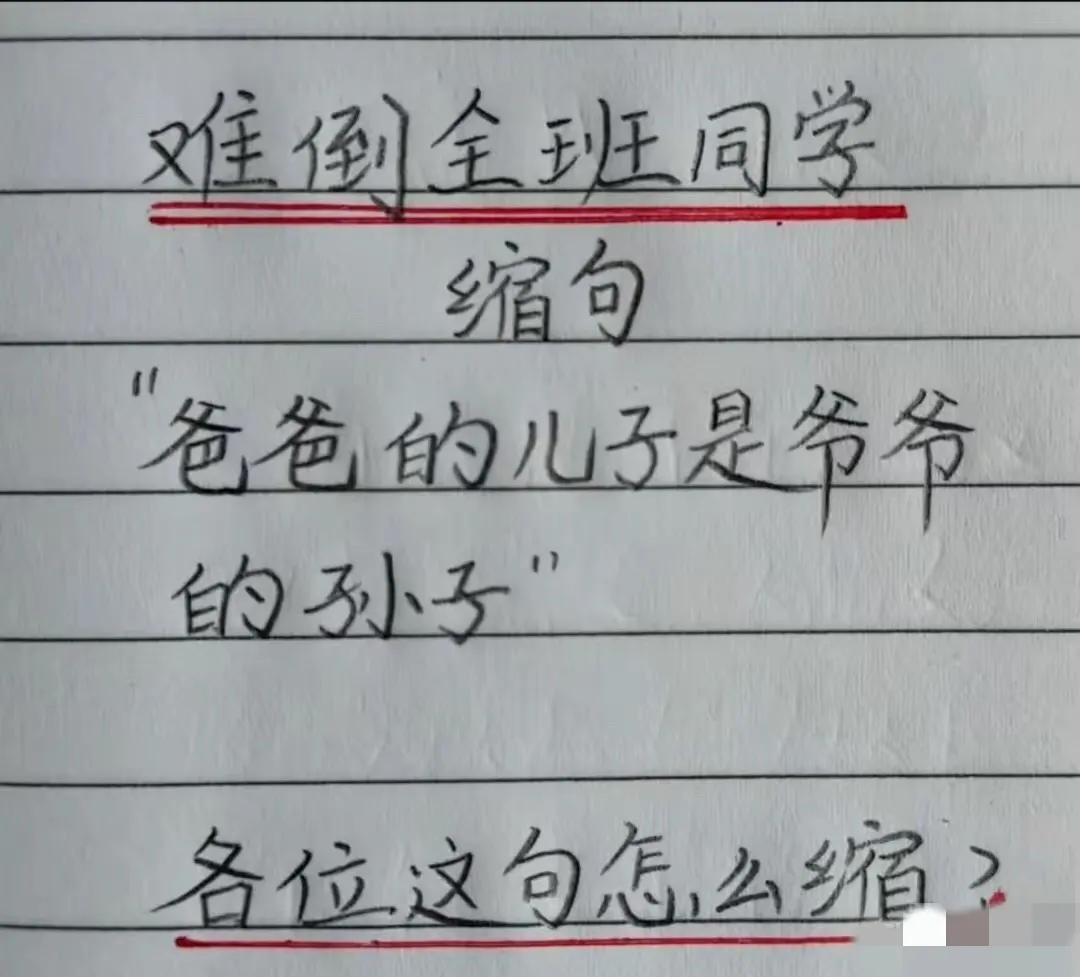 难倒全班同学
缩句
"爸爸的儿子是爷爷
的孙子"
各位这句怎么缩?